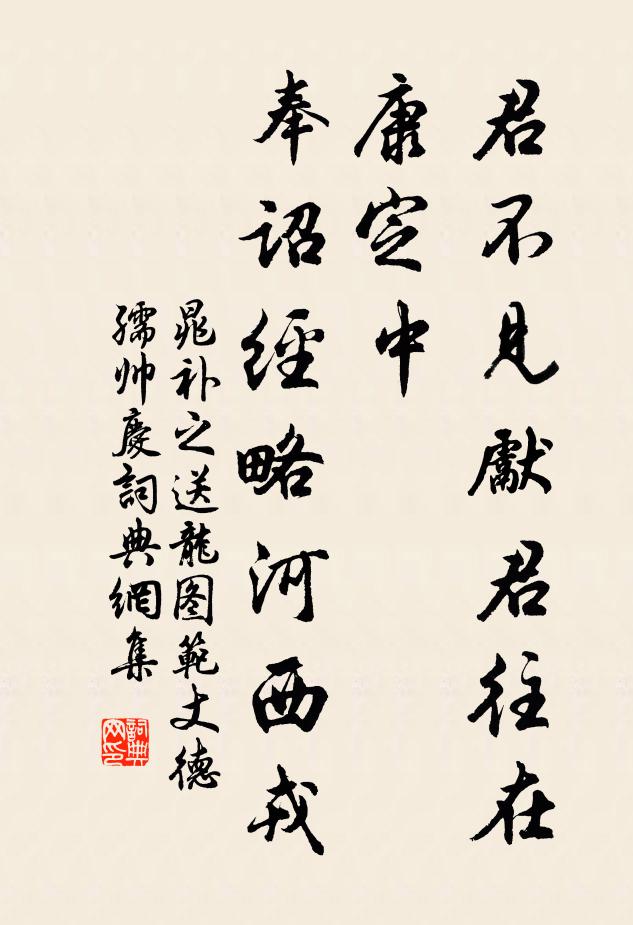 君不見獻君往在
康定中
奉詔經略河西戎
晁补之送龍图範丈德
孺帅慶詞典網集
詞典网印